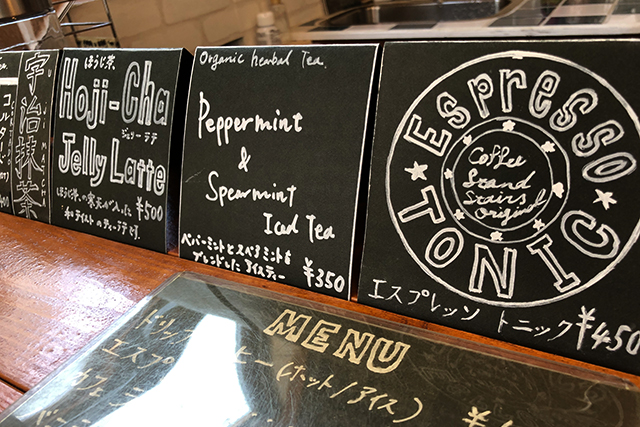 宇治抹茶
UJI MACHA
ほうじ茶
Hoji-Cha
ジェリーラテ
Jelly Latte
ほうじ茶の寒天が入った
¥500
Organic herbal Tea.
Peppermint
&
Spearmint
Iced Tea
ペパーミントとスペアミントを
ブレンドしたアイスティー
¥350
Espresso
TONIC
Coffee
Stand
Stairs
original
エスプレッソ トニック ¥450
MENU
(ホット/アイス)
エスプ
カフェ